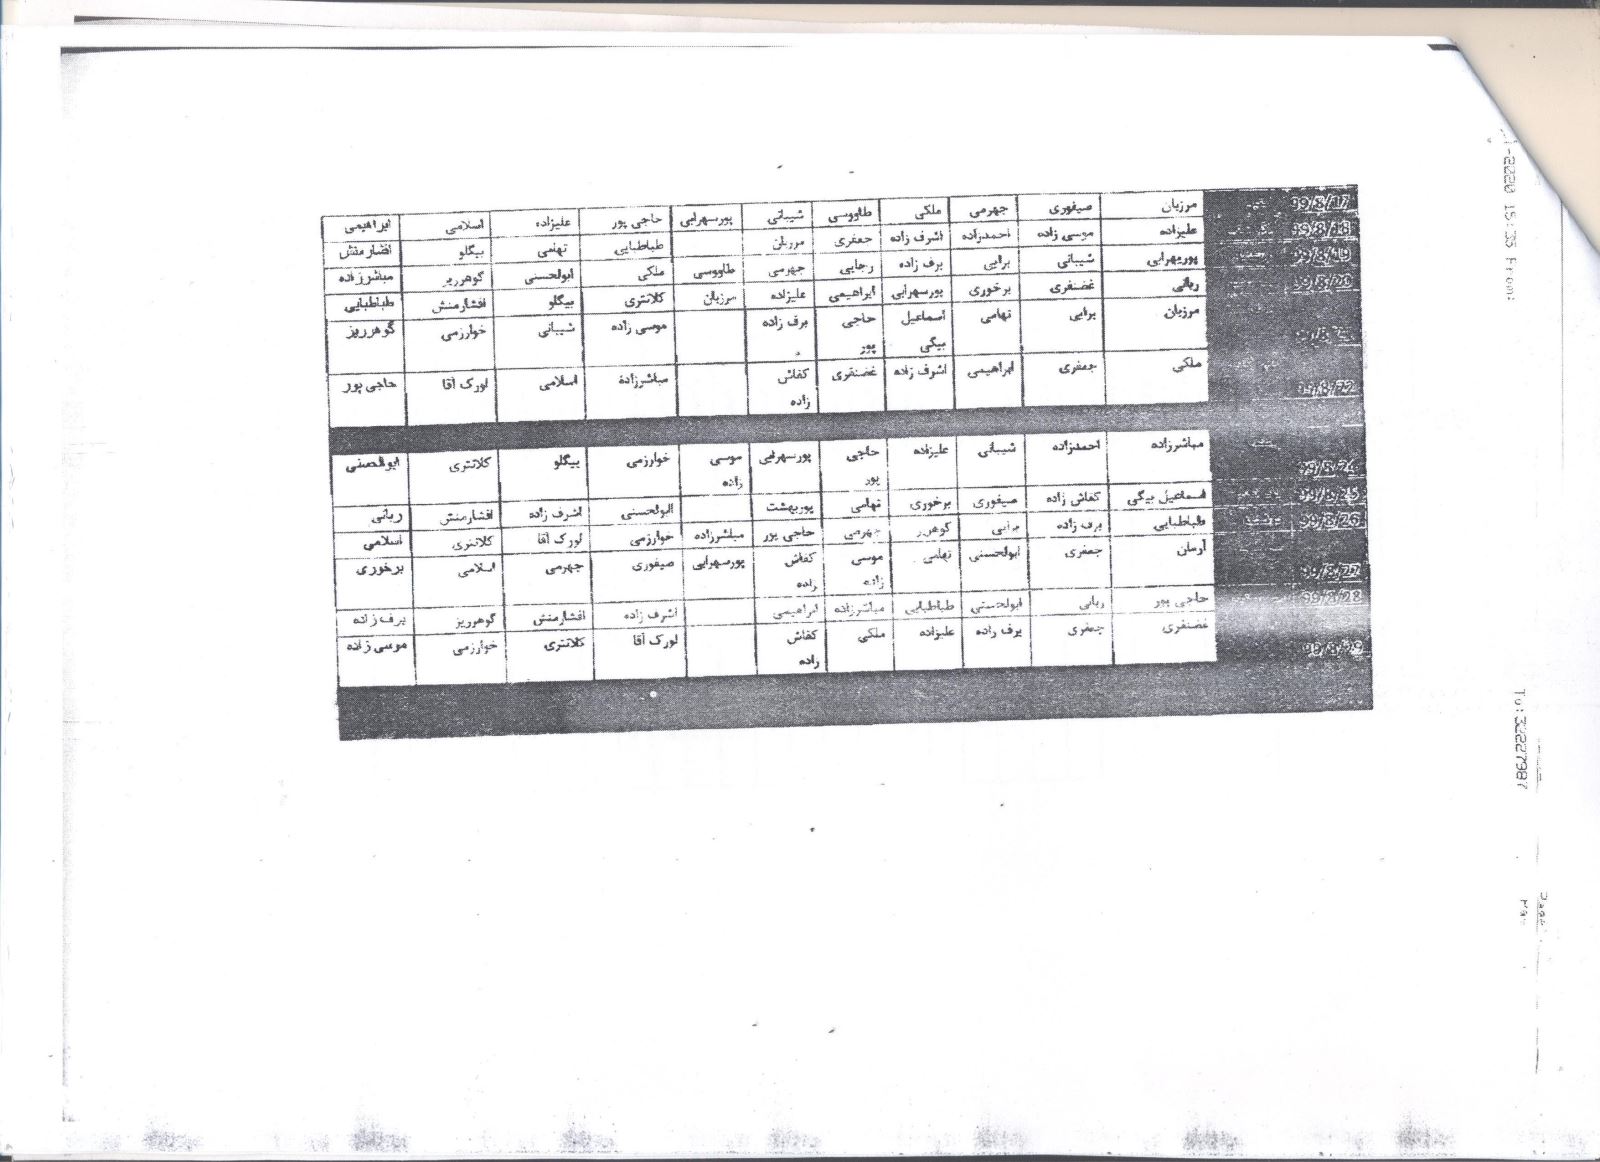 99/8/17 مرزبان صیفوری جهرمی ملکی طاووسی شیبانی پورسهرابی حاجی پور علیزاده اسلامی ابراهیمی
99/8/18 علیزاده موسی زاده احمدزاده اشرف زاده جعفری مرزبان طباطبایی تهامی بیگلو افشارمنش
99/8/19 پوربهرابی شیبانی برایی برف زاده رجایی جهرمی طاووسی ملکی ابولحسنی گوهرریز مباشرزاده
99/8/20 ربانی غضنفری برخوری پورسهرابی ابراهیمی علیزاده مرزبان کلانتری بیگلو افشارمنش طباطبایی
مرزبان برایی تهامی اسماعیل بیگی حاجی پور برف زاده موسی زاده شیبانی خوارزمی گوهرریز
99/8/22 ملکی جعفری ابراهیمی اشرف زاده غضنفری کفاش زاده مباشرزاده اسلامی لورک آقا حاجی پور
99/8/24 مباشرزاده احمدزاده شیبانی علیزاده حاجی پور پورسهرابی موسی زاده خوارزمی بیگلو کلانتری ابوالحسنی
99/8/25 اسماعیل بیگی کفاش زاده صیفوری برخوری تهامی پوربهشت ابولحسنی اشرف زاده افشارمنش ربانی
99/8/26 طباطبایی برف زاده برایی گوهرریز جهرمی حاجی پور مباشرزاده خوارزمی لورک آقا کلانتری اسلامی
99/8/27 آرمان جعفری ابولحسنی تهامی موسی زاده کفاش زاده پورسهرابی صیفوری جهرمی اسلامی برخوری
99/8/28 حاجی پور ربانی ابولحسنی طباطبایی مباشرزاده ابراهیمی اشرف زاده افشارمنش گوهرریز برف زاده
99/8/29 غضنفری جعفری برف زاده علیزاده ملکی کفاش زاده لورک آقا کلانتری خوارزمی موسی زاده
-2020 15:35 From:
To:32227987